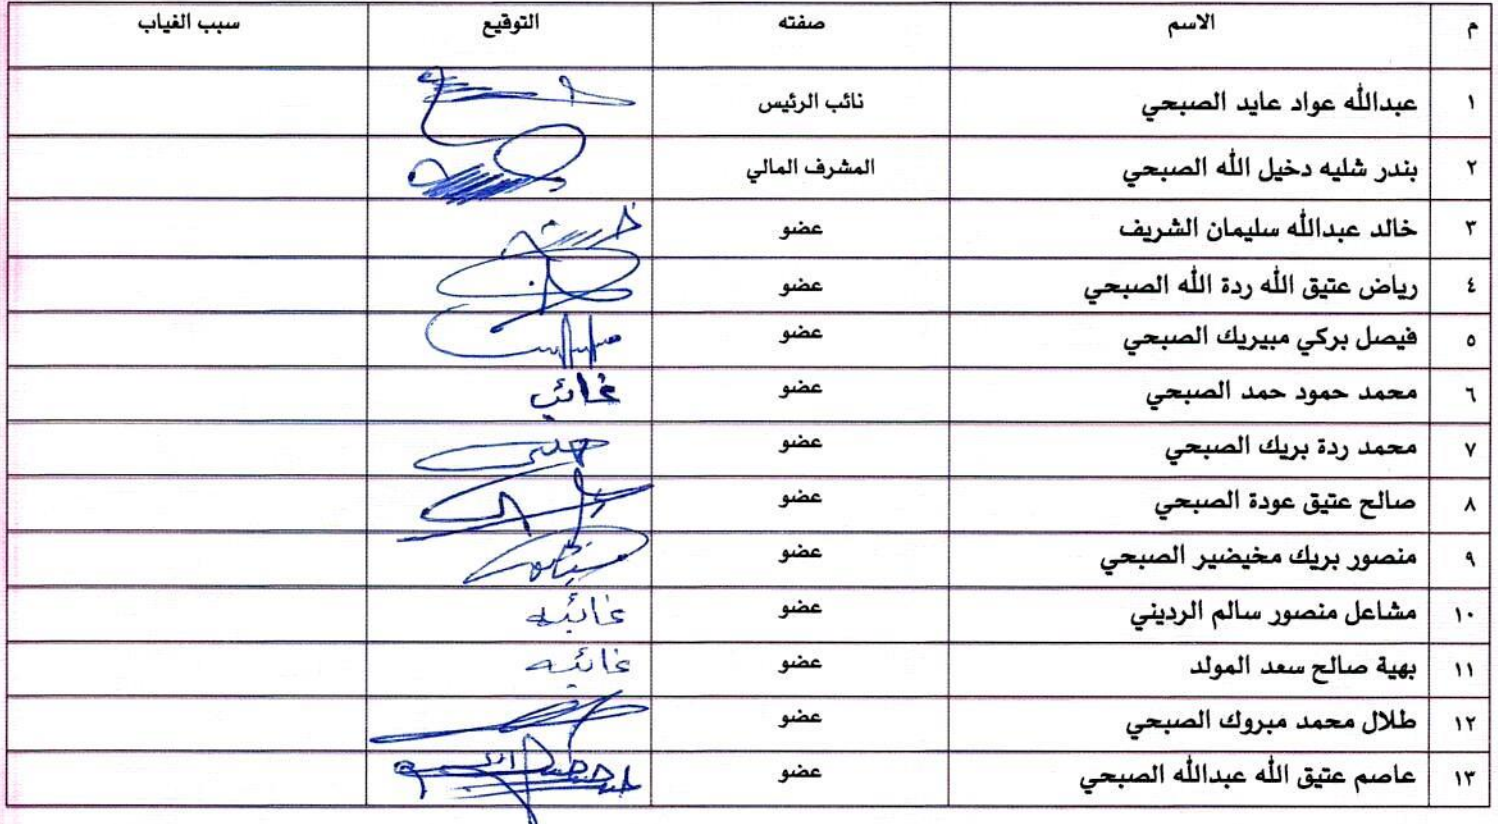 م الاسم صفته التوقيع سبب الغياب
١ عبدالله عواد عايد الصبحي نائب الرئيس
٢ بندر شليه دخيل الله الصبحي المشرف المالي
٣ خالد عبدالله سليمان الشريف عضو
٤ رياض عتيق الله ردة الله الصبحي عضو
٥ فيصل بركي مبيريك الصبحي عضو
٦ محمد حمود حمد الصبحي عضو غائب
٧ محمد ردة بريك الصبحي عضو
٨ صالح عتيق عودة الصبحي عضو
٩ منصور بريك مخيضير الصبحي عضو
١٠ مشاعل منصور سالم الرديني عضو غائبه
١١ بهية صالح سعد المولد عضو غائبه
١٢ طلال محمد مبروك الصبحي عضو
١٣ عاصم عتيق الله عبدالله الصبحي عضو